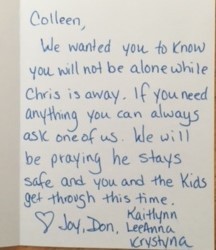 Colleen,
We wanted you to know
you will not be alone while
Chris is away. If you need
anything you can always
ask one of us. We will
be praying he stays
safe and you and the Kids
get through this time.
♡ Joy, Don, Kaitlynn
LeeAnna
Krystyna